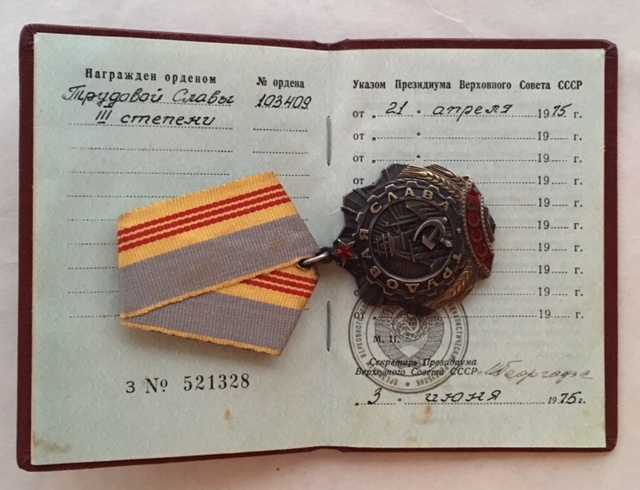 Награжден орденом
№ ордена
Трудовой Славы
103409
III степени
З № 521328
Указом Президиума Верховного Совета СССР
от „ 21 " апреля 1975 г.
от „ " 19 г.
от „ " 19 г.
от 19 г.
19 г.
19 г.
19 г.
19 г.
19 г.
от 19 г.
ТРУДОВАЯ СЛАВА
СССР
М. П.
Секретарь Президиума
Верховного Совета СССР
Георгадзе
„ 3 " июня 1975 г.